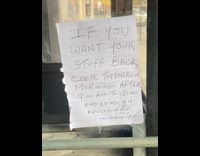 IF YOU
WANT YOUR
STUFF BACK,
COME TOMORROW
MORNING AFTER
9
AND BRING AN
APOLOGY!!!